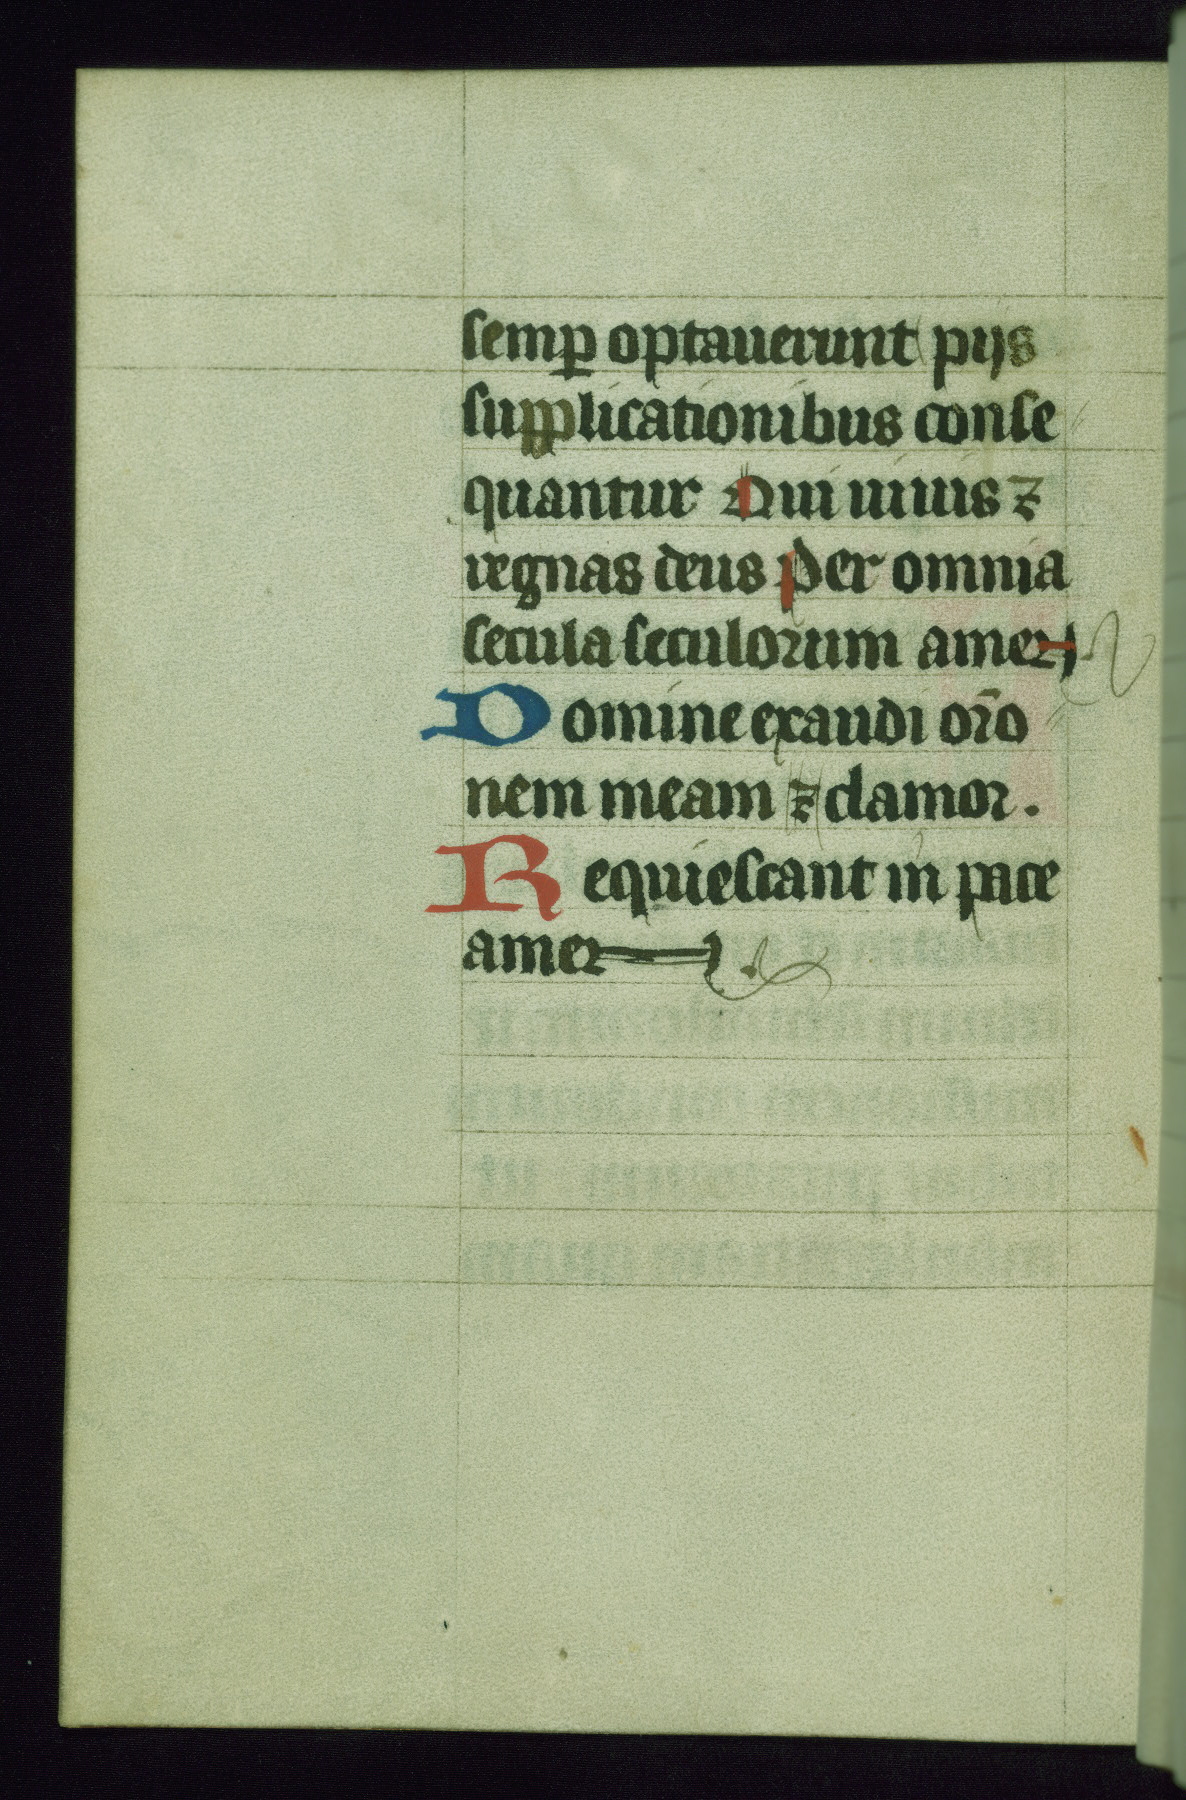 semꝑ optauerunt pijs
supplicationibus conse
quantur Qui uiuis ⁊
regnas deus Per omnia
secula seculorum amen
Domine exaudi or̄o
nem meam ⁊ clamor.
Requiescant in pace
amen